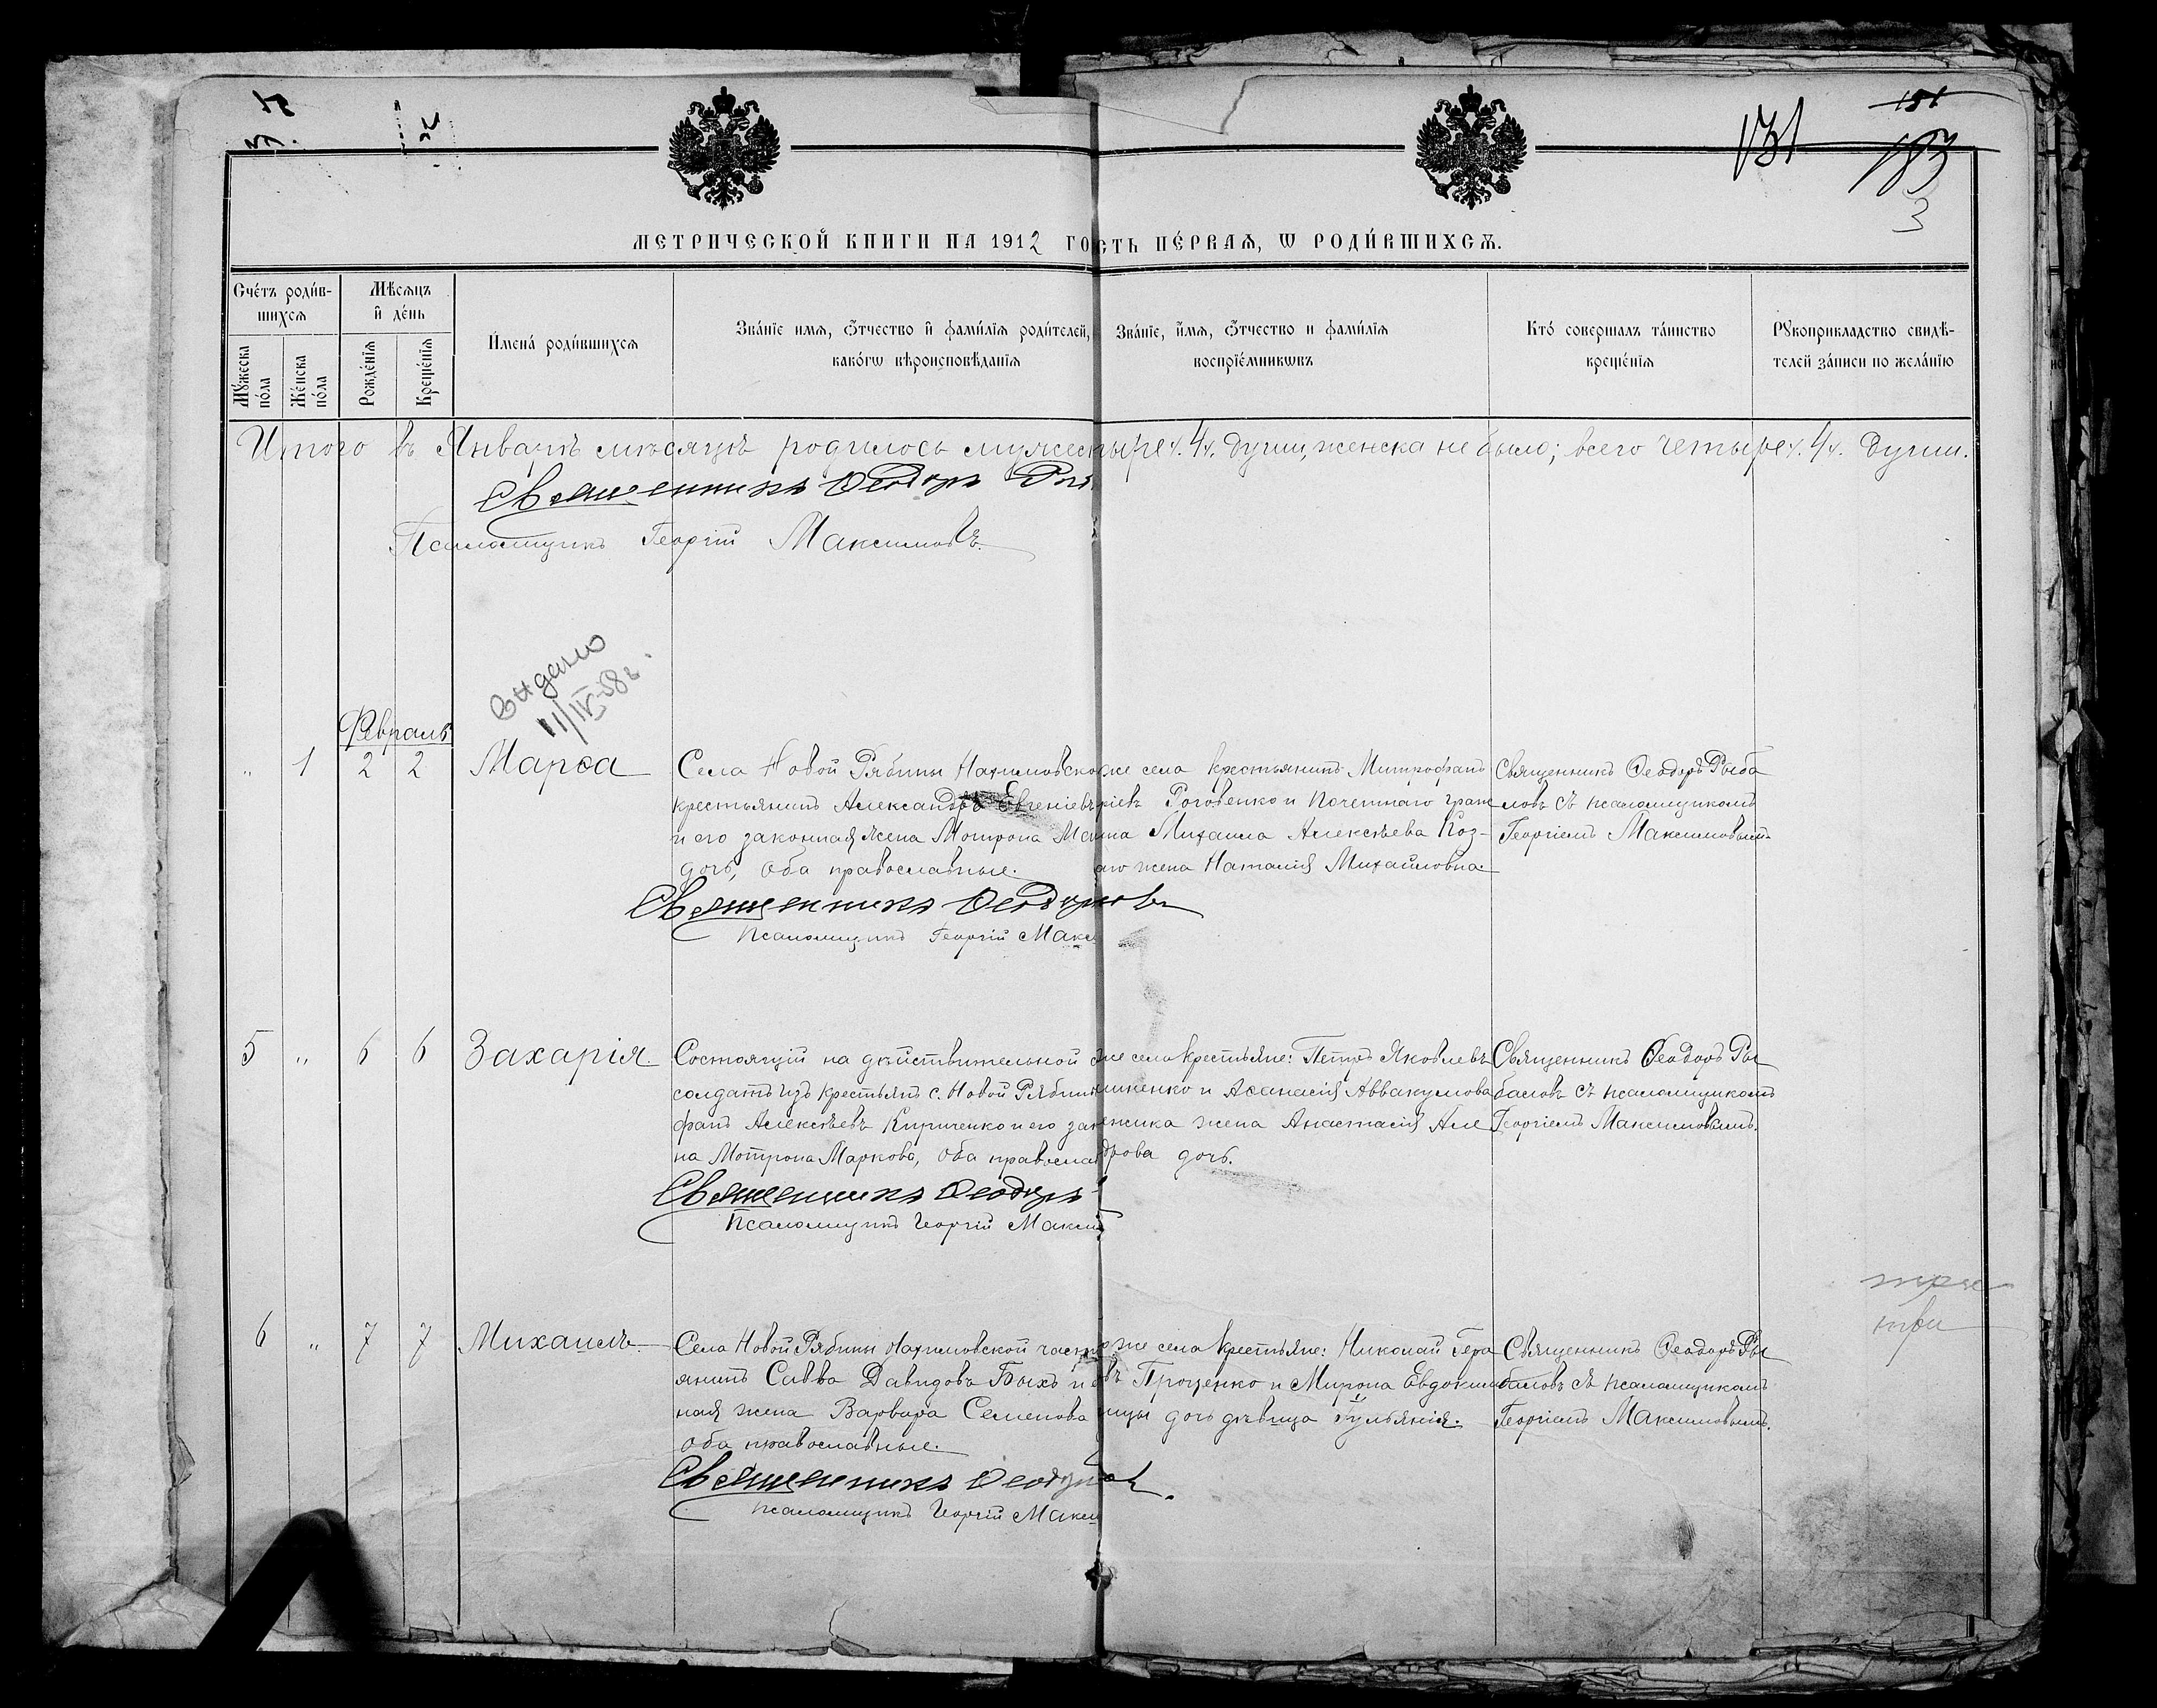 131
151
183
3
МЕТРИЧЕСКОЙ КНИГИ НА 1912 ГО
СТЬ ПЕ́РВАѦ, Ѡ РОДИ́ВШИХСѦ.
Счётъ роди́в-
шихсѧ
Мѣсѧцъ
и҆ де́нь
И҆мена́ роди́вшихсѧ
Зва́нїе имѧ, ѻ҆́тчество и҆ фами́лїѧ роди́телей,
како́гѡ вѣроисповѣ́данїѧ
Зва́нїе, и҆мѧ, ѻ҆́тчество и фами́лїѧ
воспрїе́мникѡвъ
Кто́ совершалъ та́инство
креще́нїѧ
Рꙋкоприкладство свидѣ-
телей за́писи по жела́нїю
Мꙋ́жеска по́ла
Же́нска по́ла
Рожде́нїѧ
Креще́нїѧ
Итого въ Январѣ мѣсяцѣ родилось мужес
тыре ч. 4 ч. души, женска не было; всего четыре ч. 4 ч. души.
Священникъ Ѳеодоръ
Псаломщикъ Георгій Максимовъ.
видано
11/IV-58г.
Февраль
" 1 2 2 Марѳа
Села Новой Рябины Нахимовско
крестьянинъ Александръ Евгеніевъ
и его законная жена Мотрона Ма
дочь, оба православные.
же села крестьянинъ Митрофанъ
Роговенко и почетнаго граж
Михаила Алексѣева Коз-
жена Наталія Михайловна.
Священникъ Ѳеодоръ Рыба
ловъ съ псаломщикомъ
Георгіемъ Максимовымъ.
Священникъ Ѳеодор
Псаломщикъ Георгій Макс
5 " 6 6 Захарія
Состоящій на дѣйствительной
солдатъ изъ крестьянъ с. Новой Рябины
фанъ Алексѣевъ Кириченко и его зак
на Мотрона Маркова, оба правосла
же села крестьяне: Петръ Яковлевъ
и Аѳанасія Аввакумова
жена Анастасія Але
дрова дочь.
Священникъ Ѳеодоръ Ры
баловъ съ псаломщикомъ
Георгіемъ Максимовымъ.
Священникъ Ѳеодоръ
Псаломщикъ Георгій Макси
6 " 7 7 Михаилъ
Села Новой Рябины Нахимовской част
янинъ Савва Давидовъ Быхъ и
ная жена Варвара Семенова
оба православные.
же села крестьяне: Николай Гера
Проценко и Мирона Евдоким
дочь дѣвица Гульянія.
Священникъ Ѳеодоръ Ры
баловъ съ псаломщикомъ
Георгіемъ Максимовымъ.
Священникъ Ѳеодор
Псаломщикъ Георгій Макси
три